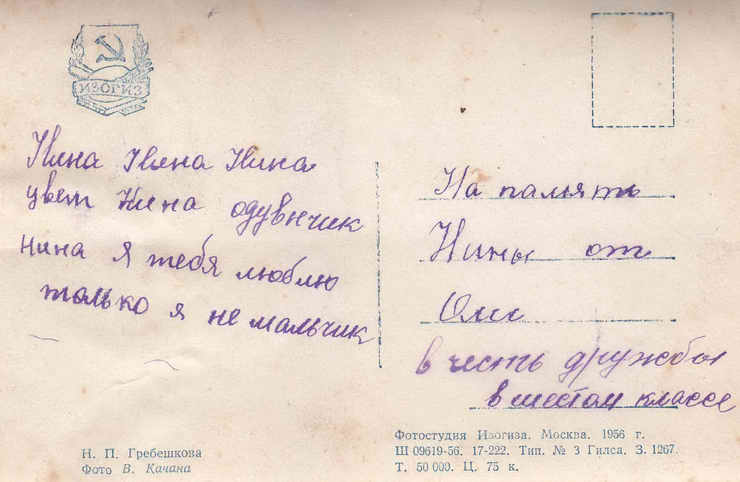 ИЗОГИЗ
Нина Нина Нина
цвет Нина одувнчик
Нина я тебя люблю
только я не мальчик
На память
Нины от
Оли
в честь дружбы
в шестом классе
Н. П. Гребешкова
Фото В. Качана
Фотостудия Изогиза. Москва. 1956 г.
Ш 09619-56. 17-222. Тип. № 3 Гилса. З. 1267.
Т. 50 000. Ц. 75 к.